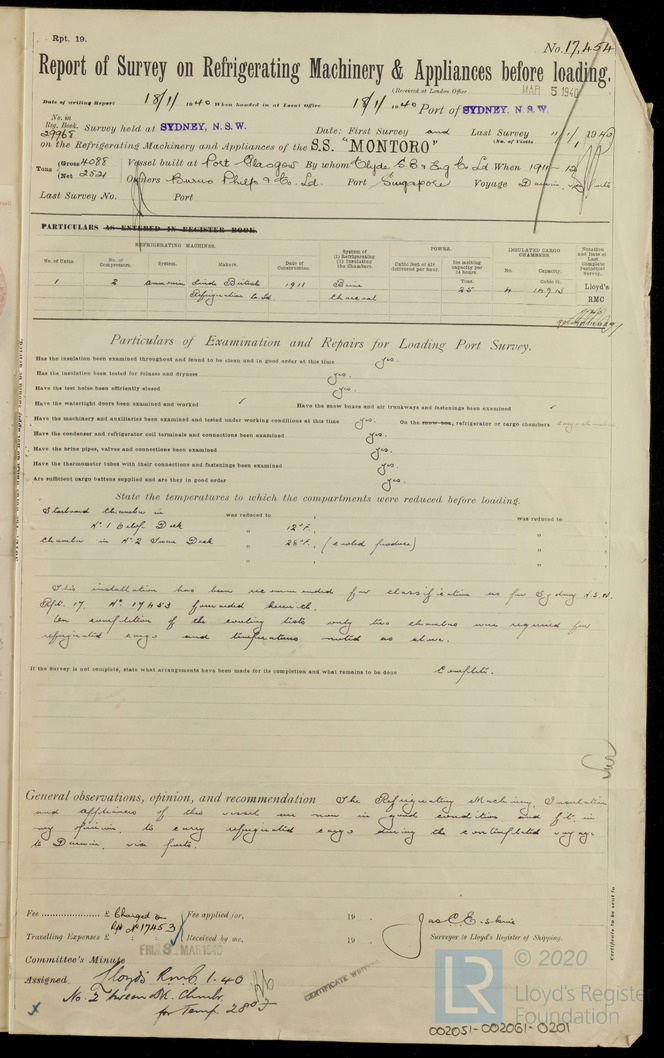 Rpt. 19.
No. 17,454
Report of Survey on Refrigerating Machinery & Appliances before loading.
(Received at London Office MAR 5 1940
Date of writing Report 18/1/1940 When handed in at Local Office 18/1/1940 Port of SYDNEY, N. S. W.
No. in Reg. Book.
29968 Survey held at SYDNEY, N. S. W. Date: First Survey and Last Survey 11/1/1940
(No. of Visits
on the Refrigerating Machinery and Appliances of the S.S. "MONTORO"
Tons (Gross 4088 Vessel built at Port Glasgow By whom Clyde S.B. & Eng Co Ld When 1911-12
(Net 2521 Owners Burns Philp & Co. Ld. Port Singapore Voyage Darwin, via Ports
Last Survey No. Port
PARTICULARS AS ENTERED IN REGISTER BOOK.
REFRIGERATING MACHINES.
No. of Units. No. of Compressors. System. Makers. Date of Construction. System of (1) Refrigerating (2) Insulating the Chambers. POWER. Cubic feet of air delivered per hour. Ice melting capacity per 24 hours INSULATED CARGO CHAMBERS. No. Capacity. Notation and Date of Last Complete Periodical Survey.
Tons. Cubic ft.
1 2 Ammonia Linde British 1911 Brine 25 4 Lloyd's
Refrigeration Co. Ld. Charcoal RMC
Particulars of Examination and Repairs for Loading Port Survey.
Has the insulation been examined throughout and found to be clean and in good order at this time yes.
Has the insulation been tested for fulness and dryness yes.
Have the test holes been efficiently closed yes.
Have the watertight doors been examined and worked ✓ Have the snow boxes and air trunkways and fastenings been examined ✓
Have the machinery and auxiliaries been examined and tested under working conditions at this time yes. On the snow box, refrigerator or cargo chambers cargo chambers
Have the condenser and refrigerator coil terminals and connections been examined yes.
Have the brine pipes, valves and connections been examined yes.
Have the thermometer tubes with their connections and fastenings been examined yes.
Are sufficient cargo battens supplied and are they in good order yes.
State the temperatures to which the compartments were reduced before loading.
Starboard Chamber in was reduced to was reduced to
No. 1 Deck " 12°F. "
Chamber in No. 2 Tween Deck " 28°F. (cooled produce) "
" "
This installation has been recommended for classification as per Sydney N.S.W.
Rpt. 17. No. 17453 forwarded herewith.
On completion of the cooling tests only two chambers were required for
refrigerated cargo and temperatures noted as above.
If the Survey is not complete, state what arrangements have been made for its completion and what remains to be done Complete.
General observations, opinion, and recommendation The Refrigerating Machinery, Insulation
and appliances of this vessel are now in good condition and fit, in
my opinion, to carry refrigerated cargo during the contemplated voyage
to Darwin, via ports.
Fee £ Charged on Rpt No 17453 Fee applied for, 19 .
Travelling Expenses £ Received by me, 19 .
Jas C. Erskine
Surveyor to Lloyd's Register of Shipping.
FRI. 8 MAR 1940
Committee's Minute
Assigned Lloyd's R.M.C. 1.40
No. 2 Tween Dk. Chmbr.
for Temp. 28° F
CERTIFICATE WRITTEN
Certificate to be sent to
© 2020
LR
Lloyd's Register
Foundation
002051-002061-0201